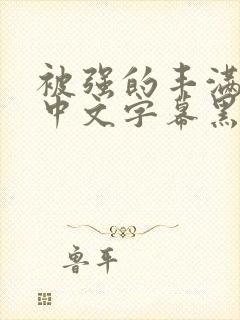 被强的丰满
中文字幕黑
鲁平